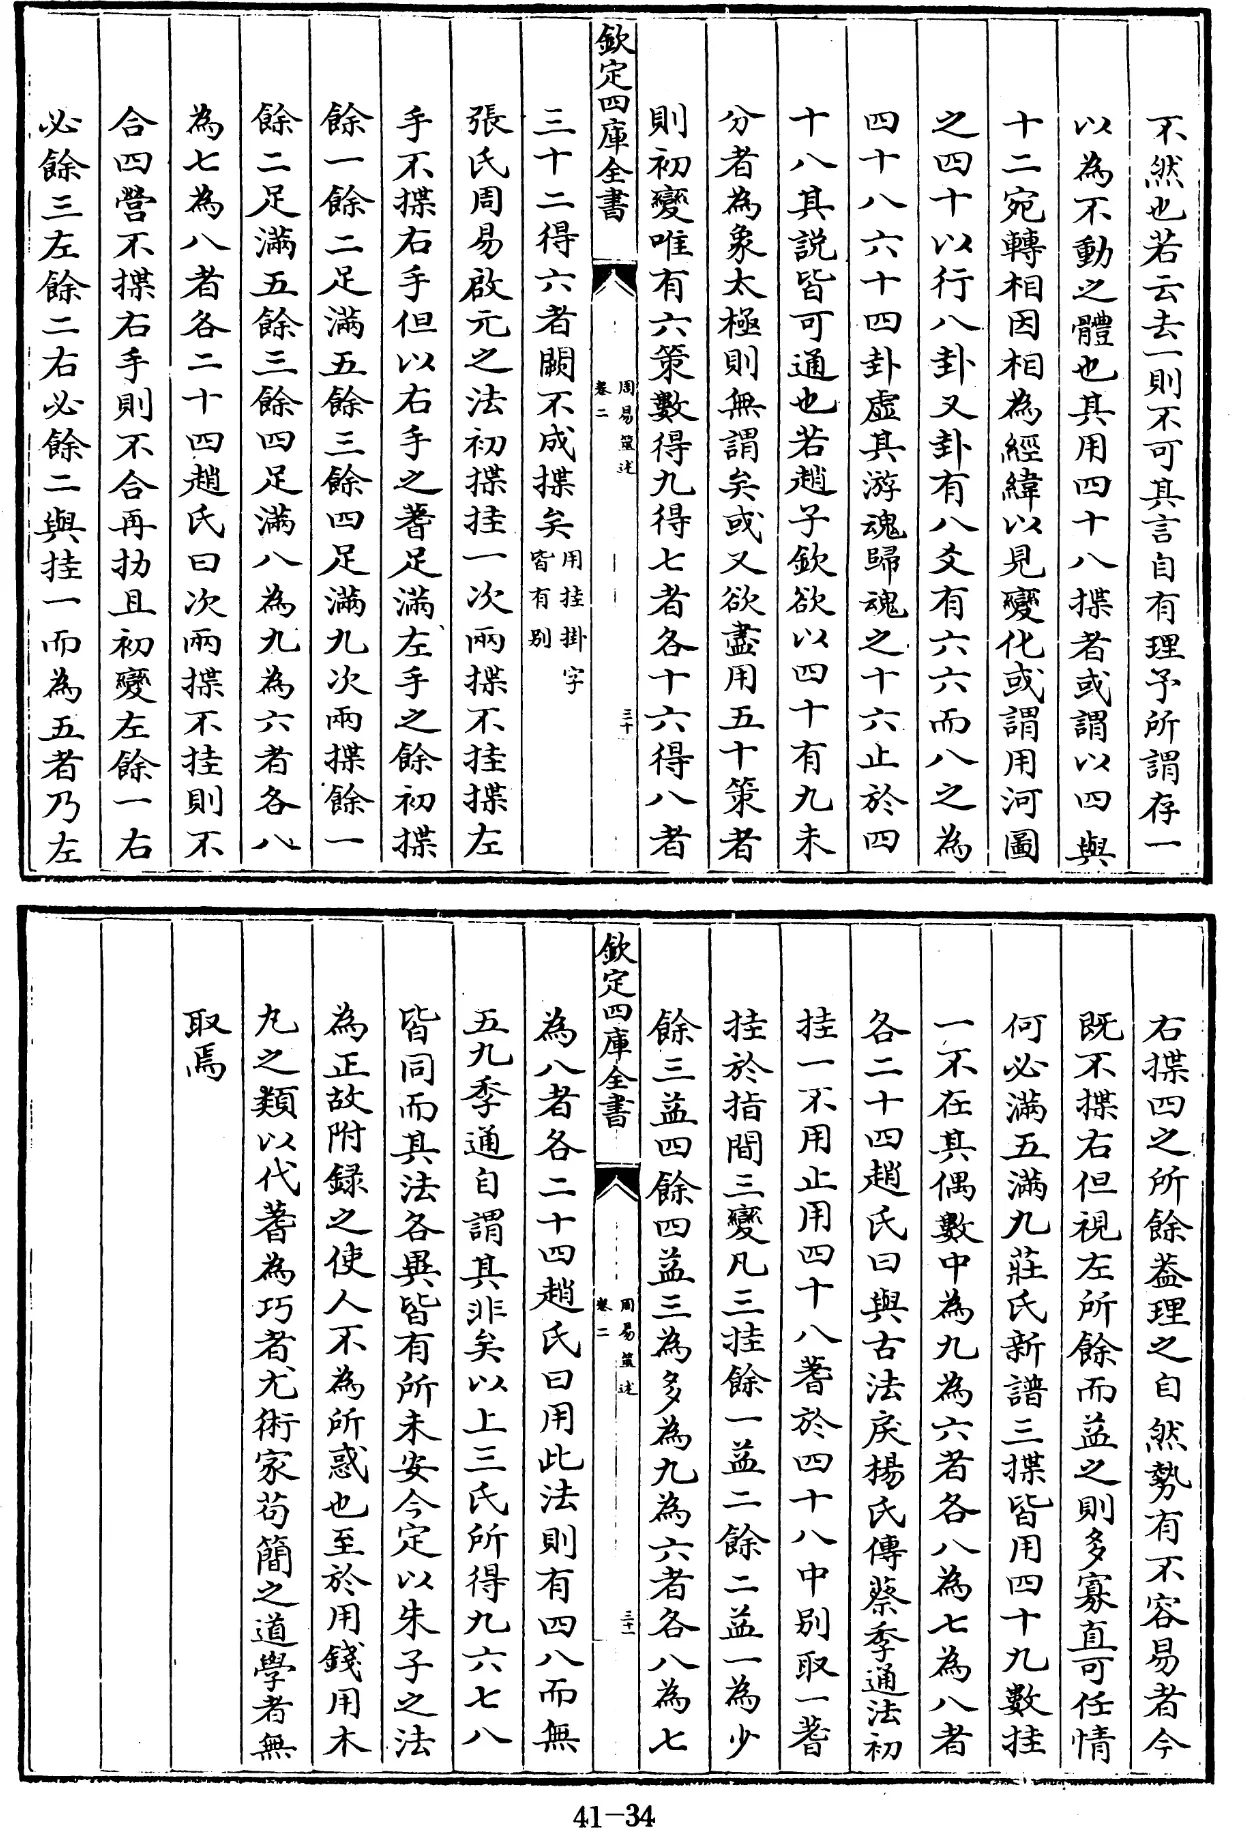 不然也若云去一則不可其言自有理予所謂存一
以為不動之體也其用四十八揲者或謂以四與
十二宛轉相因相為經緯以見變化或謂用河圖
之四十以行八卦又卦有八爻有六六而八之為
四十八六十四卦虛其游魂歸魂之十六止於四
十八其説皆可通也若趙子欽欲以四十有九未
分者為象太極則無謂矣或又欲盡用五十策者
則初變唯有六策數得九得七者各十六得八者
欽定四庫全書
周易筮述
卷二
三十
三十二得六者闕不成揲矣用挂掛字
皆有别
張氏周易啟元之法初揲挂一次兩揲不挂揲左
手不揲右手但以右手之蓍足滿左手之餘初揲
餘一餘二足滿五餘三餘四足滿九次兩揲餘一
餘二足滿五餘三餘四足滿八為九為六者各八
為七為八者各二十四趙氏曰次兩揲不挂則不
合四營不揲右手則不合再扐且初變左餘一右
必餘三左餘二右必餘二與挂一而為五者乃左
右揲四之所餘葢理之自然勢有不容易者今
既不揲右但視左所餘而益之則多寡直可任情
何必滿五滿九莊氏新譜三揲皆用四十九數挂
一不在其偶數中為九為六者各八為七為八者
各二十四趙氏曰與古法戾楊氏傳蔡季通法初
挂一不用止用四十八蓍於四十八中别取一蓍
挂於指間三變凡三挂餘一益二餘二益一為少
餘三益四餘四益三為多為九為六者各八為七
欽定四庫全書
周易筮述
卷二
三十一
為八者各二十四趙氏曰用此法則有四八而無
五九季通自謂其非矣以上三氏所得九六七八
皆同而其法各異皆有所未安今定以朱子之法
為正故附録之使人不為所惑也至於用錢用木
九之類以代蓍為巧者尤術家茍簡之道學者無
取焉
41-34